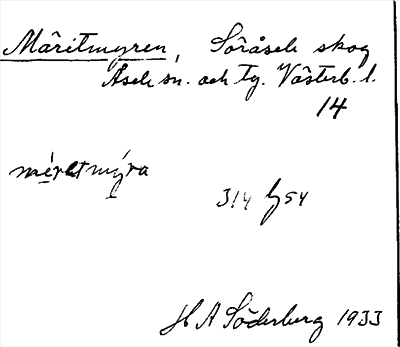 Måritmyren, Söråsele skog
Åsele sn. och tg. Västerb. l.
14
mèretmýra
314 by 54
H A Söderberg 1933